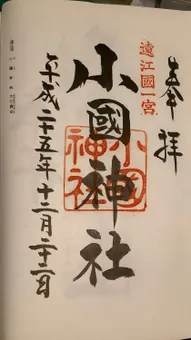 奉拝
遠江國一宮
小國神社
小國神社
平成二十五年十二月二十二日